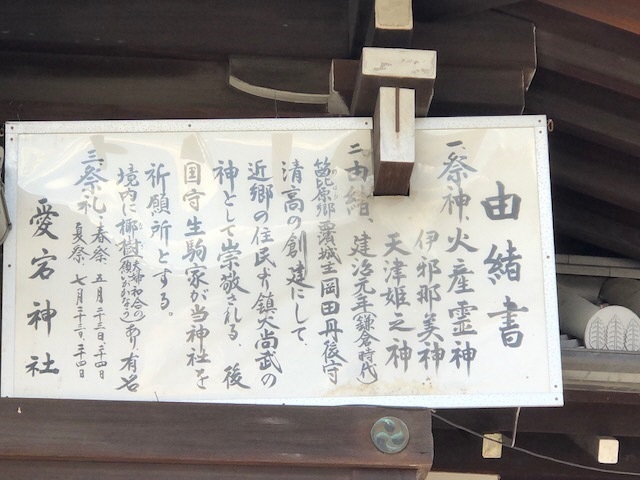 由緒書
一、祭神、火産霊神
伊邪那美神
天津姫之神
二、由緒、建治元年(鎌倉時代)
原郷 城主岡田丹後守
清高の創建にして、
近郷の住民が鎮火尚武の
神として崇敬される、後
国守生駒家が当神社を
祈願所とする。
境内に椰樹(夫婦和合の)あり有名
三、祭礼、春祭 五月二十三日、二十四日
夏祭 七月二十三、二十四日
愛宕神社